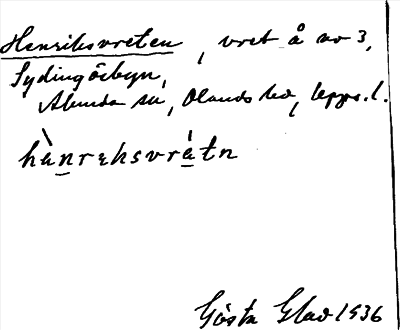 Henriksvreten, vret å nr 3,
Sydingösbyn,
Alunda sn, Olands hd, Upps. l.
hànrɛksvrátn
Gösta Glad 1936